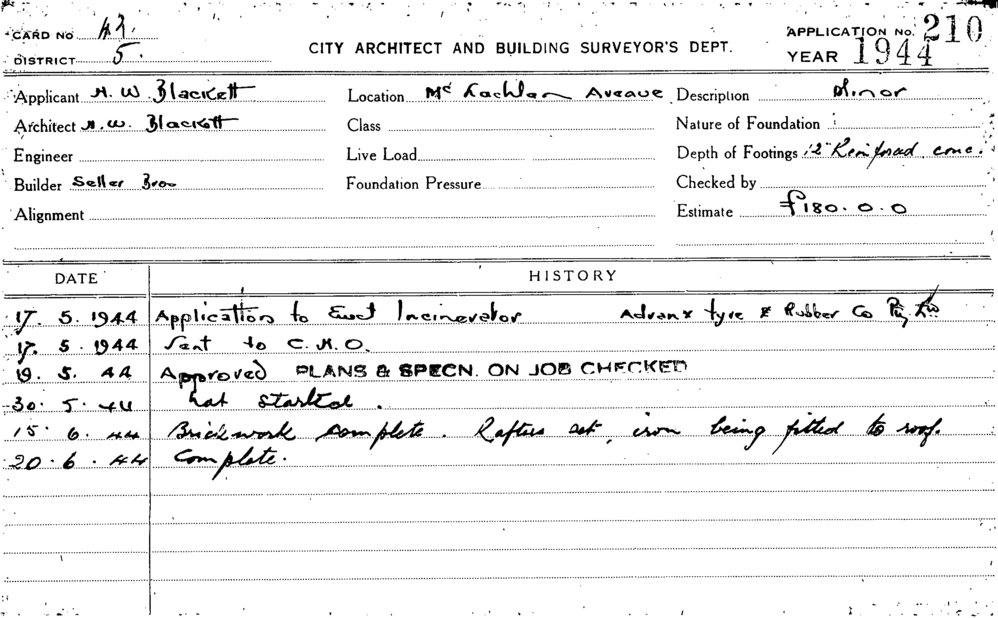 CARD No 43. CITY ARCHITECT AND BUILDING SURVEYOR'S DEPT. APPLICATION No. 210
DISTRICT 5. YEAR 1944
Applicant H. W. Blackett Location Mc Lachlan Avenue Description Minor
Architect H. W. Blackett Class Nature of Foundation
Engineer Live Load Depth of Footings 12" Reinforced conc.
Builder Seller Bros Foundation Pressure Checked by
Alignment Estimate £180.0.0
DATE HISTORY
17. 5. 1944 Application to Erect Incinerator Advanx tyre & Rubber Co Pty Ltd
17. 5. 1944 Sent to C.H.O.
19. 5. 44 Approved PLANS & SPECN. ON JOB CHECKED
30. 5. 44 not started.
15. 6. 44 Brickwork complete. Rafters set, iron being fitted to roof.
20. 6. 44 Complete.